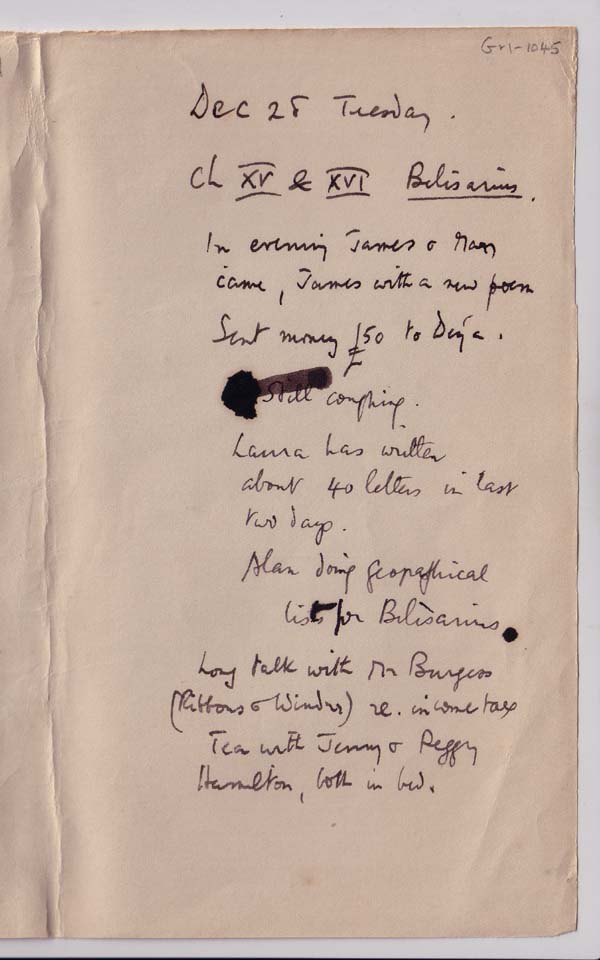 Gr1-1045
Dec 28 Tuesday.
Ch XV & XVI Belisarius.
In evening James &
came, James with a new poem
Sent money £50 to Deýa.
Still coughing.
Laura has written
about 40 letters in last
two days.
Alan doing geographical
lists for Belisarius.
Long talk with Mr Burgess
(Ribbons & Winder) re. income tax
Tea with Jenny & Peggy
Hamilton, both in bed.